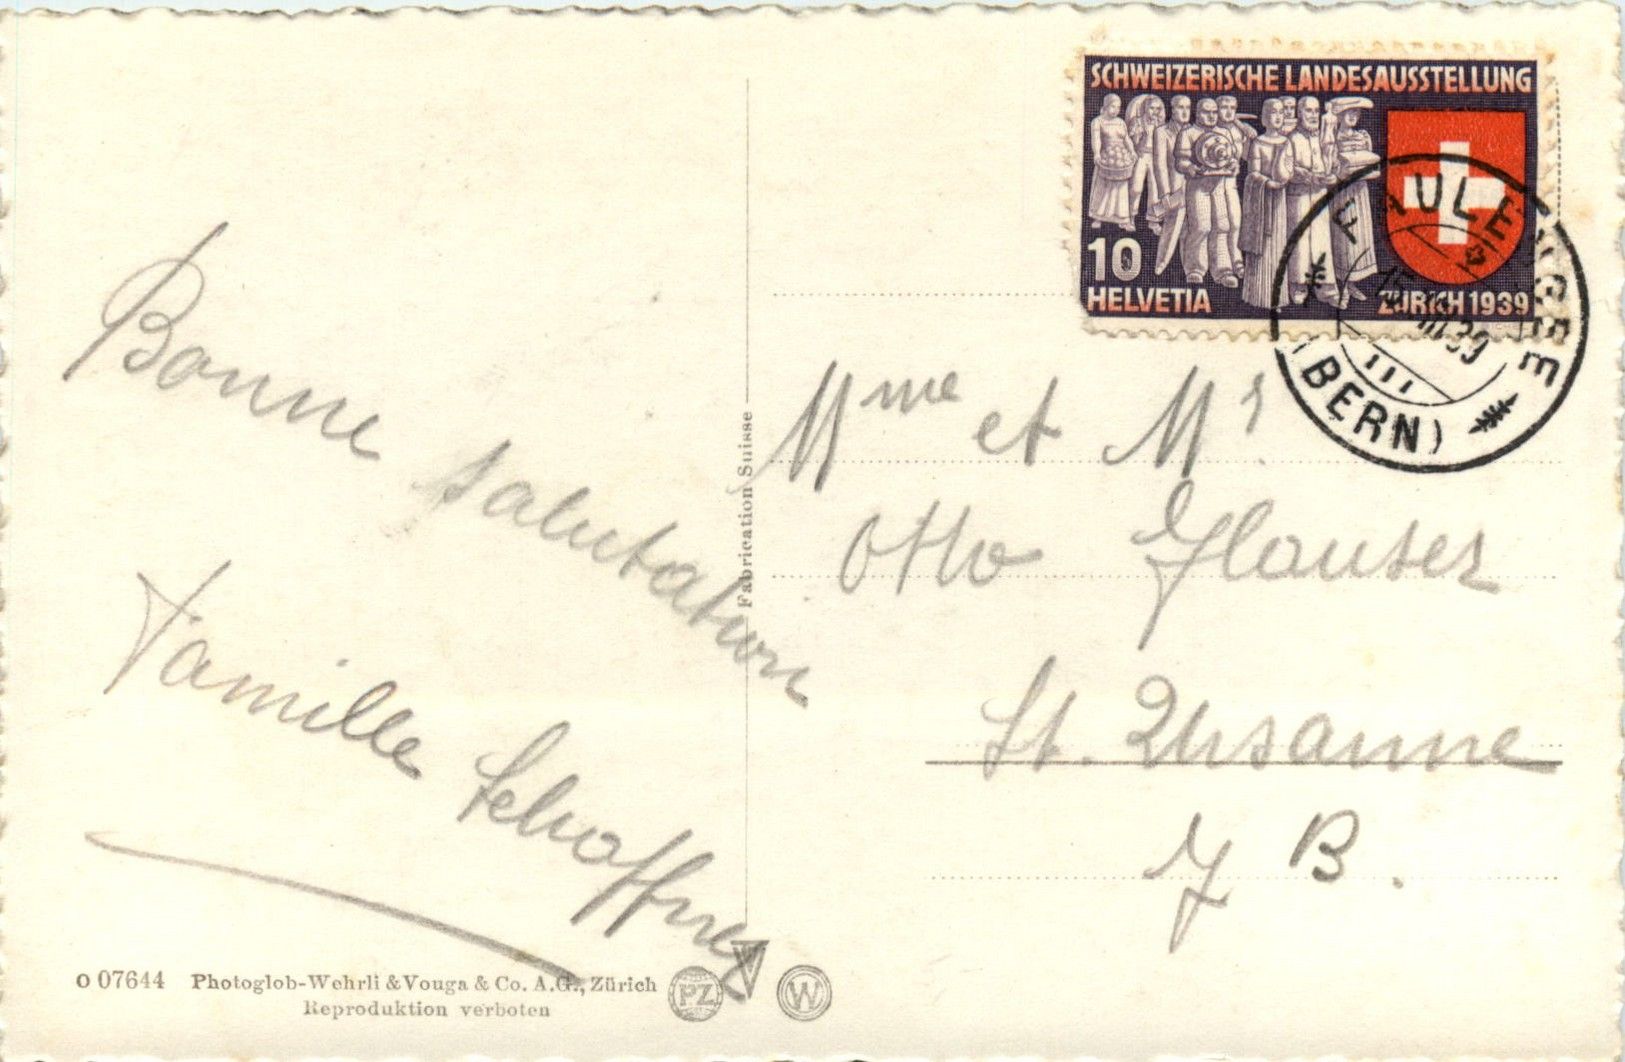 SCHWEIZERISCHE LANDESAUSSTELLUNG
10
HELVETIA
ZÜRICH 1939
FAULENSEE
(BERN)
III
Bonne salutation
Famille Schaffner
Fabrication Suisse
Mme et Mr
Otto Glauser
St. Ursanne
J B.
o 07644 Photoglob-Wehrli & Vouga & Co. A.G., Zürich
Reproduktion verboten
PZ
V
W